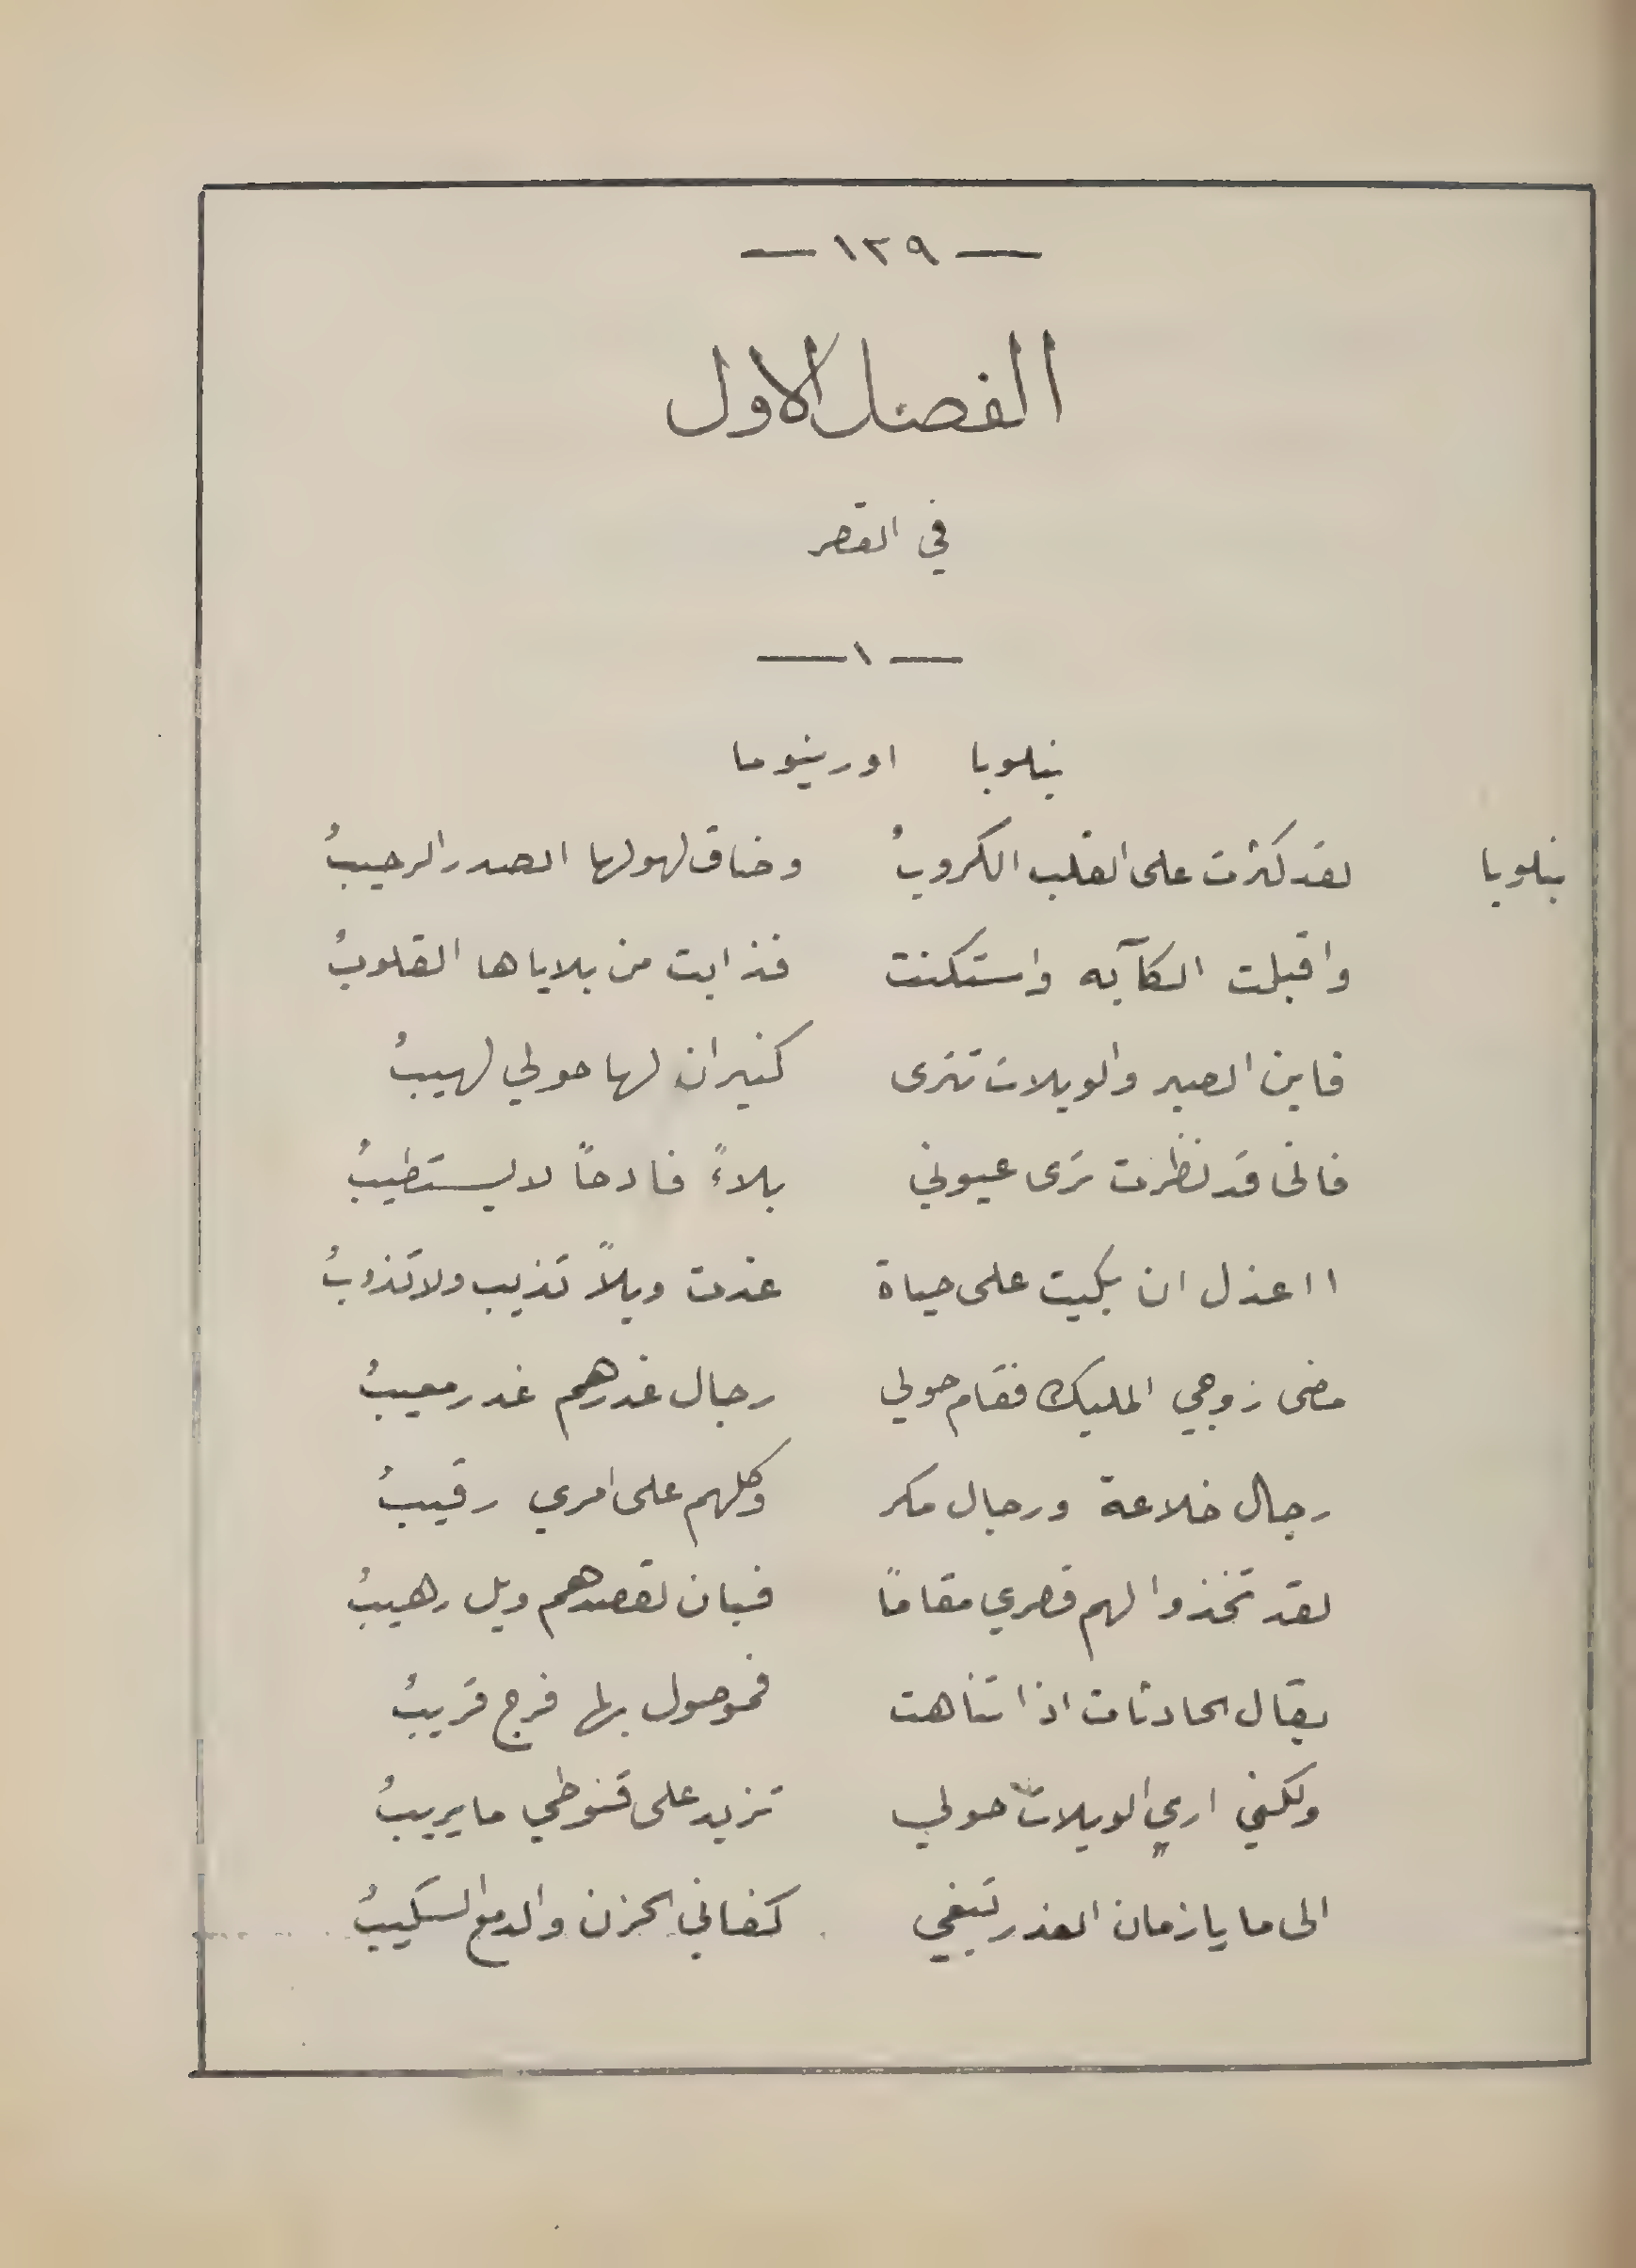 — ١٢٩ —
الفصل الاول
في القصر
— ١ —
بنلوبا اورينوما
بنلوبا لقد كثرت على القلب الكروبُ وضاق لهولها الصدر الرحيبُ
واقبلت الكآبه واستكنت فذابت من بلاياها القلوبُ
فاين الصبر والويلات تترى كنيران لها حولي لهيبُ
فانى قد نظرت ترى عيوني بلاءً فادحاً لا يستطيبُ
ااعذل ان بكيت على حياة غدت ويلاً تذيب ولا تذوبُ
مضى زوجي المليك فقام حولي رجال غدرهم غدر معيبُ
رجال خلاعة ورجال مكر وكلهم على امري رقيبُ
لقد تخذوا لهم قصري مقاماً فبان لقصدهم ويل رهيبُ
يقال الحادثات اذا تناهت فموصول بها فرج قريبُ
ولكني ارى الويلات حولي تزيد على قنوطي ما يريبُ
الى ما يا زمان الغدر تبغي كفاني الحزن والدمع السكيبُ